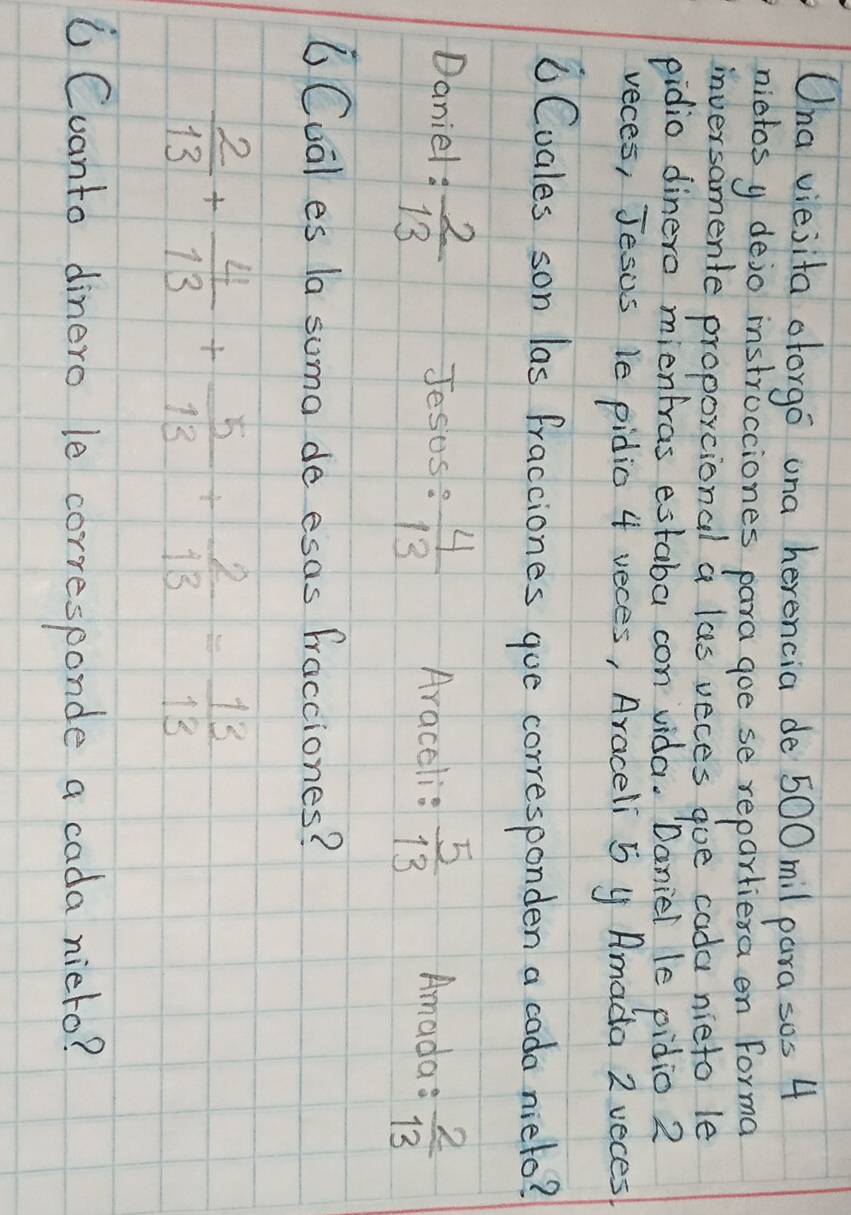 Una viejita otorgó una herencia de 500 mil para sus 4
nietos y dejo instrucciones para que se repartiera en forma
inversamente proporcional a las veces que cada nieto le
pidio dinero mientras estaba con vida. Daniel le pidio 2
veces, Jesus le pidio 4 veces, Araceli 5 y Amada 2 veces.
¿Cuales son las fracciones que corresponden a cada nieto?
Daniel: 2/13 Jesus: 4/13 Araceli: 5/13 Amada: 2/13
¿Cuál es la suma de esas fracciones?
2/13 + 4/13 + 5/13 + 2/13 = 13/13
¿Cuanto dinero le corresponde a cada nieto?